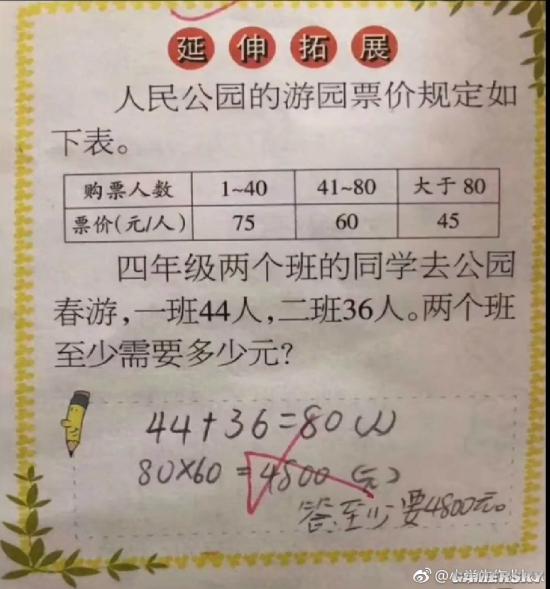 延伸拓展
人民公园的游园票价规定如
下表。
购票人数 1~40 41~80 大于80
票价(元/人) 75 60 45
四年级两个班的同学去公园
春游,一班44人,二班36人。两个班
至少需要多少元?
44+36=80(人)
80×60=4800(元)
答至少要4800元。